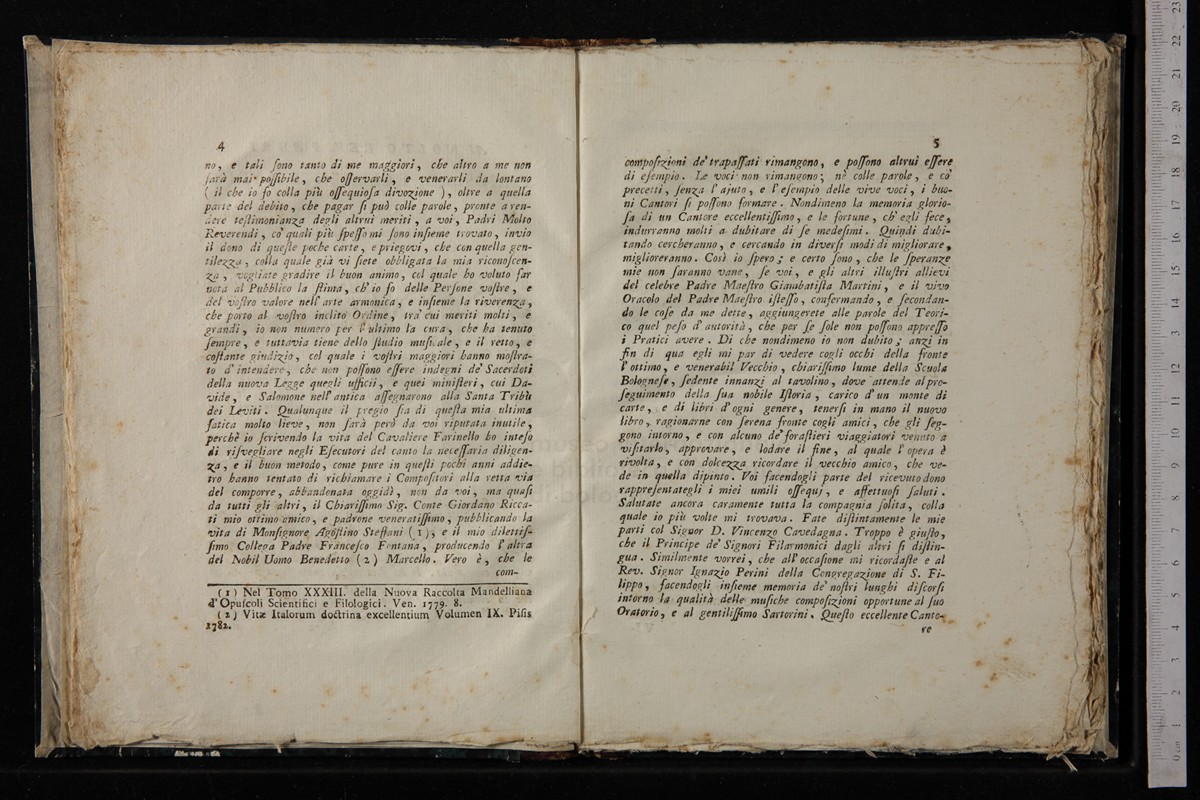 4
no, e tali ſono tanto di me maggiori, che altro a me non
ſarà mai poſſibile, che oſſervarli, e venerarli da lontano
( il che io fo colla più oſſequioſa divozione ), oltre a quella
parte del debito, che pagar ſi può colle parole, pronte a ren-
dere teſtimonianza degli altrui meriti, a voi, Padri Molto
Reverendi, co' quali più ſpeſſo mi ſono inſieme trovato, invio
il dono di queſte poche carte, e priegovi, che con quella gen-
tilezza, colla quale già vi ſiete obbligata la mia riconoſcen-
za, vogliate gradire il buon animo, col quale ho voluto far
nota al Pubblico la ſtima, ch' io fo delle Perſone voſtre, e
del voſtro valore nell' arte armonica, e inſieme la riverenza,
che porto al voſtro inclito Ordine, tra' cui meriti molti, e
grandi, io non numero per l' ultimo la cura, che ha tenuto
ſempre, e tuttavia tiene dello ſtudio muſicale, e il retto, e
coſtante giudizio, col quale i voſtri maggiori hanno moſtra-
to d' intendere, che non poſſono eſſere indegni de' Sacerdoti
della nuova Legge quegli ufficii, e quei miniſteri, cui Da-
vide, e Salomone nell' antica aſſegnarono alla Santa Tribù
dei Leviti. Qualunque il pregio ſia di queſta mia ultima
fatica molto lieve, non ſarà però da voi riputata inutile,
perchè io ſcrivendo la vita del Cavaliere Farinello ho inteſo
di riſvegliare negli Eſecutori del canto la neceſſaria diligen-
za, e il buon metodo, come pure in queſti pochi anni addie-
tro hanno tentato di richiamare i Compoſitori alla retta via
del comporre, abbandonata oggidì, non da voi, ma quaſi
da tutti gli altri, il Chiariſſimo Sig. Conte Giordano Ricca-
ti mio ottimo amico, e padrone veneratiſſimo, pubblicando la
vita di Monſignore Agoſtino Steffani (1), e il mio dilettiſ-
ſimo Collega Padre Franceſco Fontana, producendo l' altra
del Nobil Uomo Benedetto (2) Marcello. Vero è, che le
com-
(1) Nel Tomo XXXIII. della Nuova Raccolta Mandelliana
d' Opuſcoli Scientifici e Filologici. Ven. 1779. 8.
(2) Vitæ Italorum doctrina excellentium Volumen IX. Piſis
1782.
5
compoſizioni de' trapaſſati rimangono, e poſſono altrui eſſere
di eſempio. Le voci non rimangono; nè colle parole, e co'
precetti, ſenza l' ajuto, e l' eſempio delle vive voci, i buo-
ni Cantori ſi poſſono formare. Nondimeno la memoria glorio-
ſa di un Cantore eccellentiſſimo, e le fortune, ch' egli fece,
indurranno molti a dubitare di ſe medeſimi. Quindi dubi-
tando cercheranno, e cercando in diverſi modi di migliorare,
miglioreranno. Così io ſpero; e certo ſono, che le ſperanze
mie non ſaranno vane, ſe voi, e gli altri illuſtri allievi
del celebre Padre Maeſtro Giambatiſta Martini, e il vivo
Oracolo del Padre Maeſtro iſteſſo, confermando, e ſecondan-
do le coſe da me dette, aggiungerete alle parole del Teori-
co quel peſo d' autorità, che per ſe ſole non poſſono appreſſo
i Pratici avere. Di che nondimeno io non dubito; anzi in
fin di qua egli mi par di vedere cogli occhi della fronte
l' ottimo, e venerabil Vecchio, chiariſſimo lume della Scuola
Bologneſe, ſedente innanzi al tavolino, dove attende al pro-
ſeguimento della ſua nobile Iſtoria, carico d' un monte di
carte, e di libri d' ogni genere, tenerſi in mano il nuovo
libro, ragionarne con ſerena fronte cogli amici, che gli ſeg-
gono intorno, e con alcuno de' foraſtieri viaggiatori venuto a
viſitarlo, approvare, e lodare il fine, al quale l' opera è
rivolta, e con dolcezza ricordare il vecchio amico, che ve-
de in quella dipinto. Voi facendogli parte del ricevuto dono
rappreſentategli i miei umili oſſequj, e affettuoſi ſaluti.
Salutate ancora caramente tutta la compagnia ſolita, colla
quale io più volte mi trovava. Fate diſtintamente le mie
parti col Signor D. Vincenzo Cavedagna. Troppo è giuſto,
che il Principe de' Signori Filarmonici dagli altri ſi diſtin-
gua. Similmente vorrei, che all' occaſione mi ricordaſte e al
Rev. Signor Ignazio Perini della Congregazione di S. Fi-
lippo, facendogli inſieme memoria de' noſtri lunghi diſcorſi
intorno la qualità delle muſiche compoſizioni opportune al ſuo
Oratorio, e al gentiliſſimo Sartorini. Queſto eccellente Canto-
re